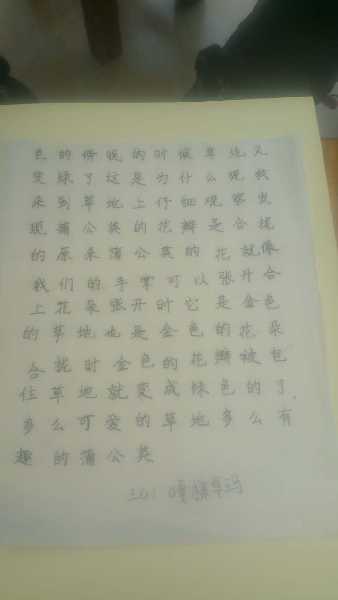 色的傍晚的时候草地又
变绿了这是为什么呢我
来到草地上仔细观察发
现蒲公英的花瓣是合拢
的原来蒲公英的花就像
我们的手掌可以张开合
上花朵张开时它是金色
的草地也是金色的花朵
合拢时金色的花瓣被包
住草地就变成绿色的了，
多么可爱的草地多么有
趣的蒲公英
三（1）